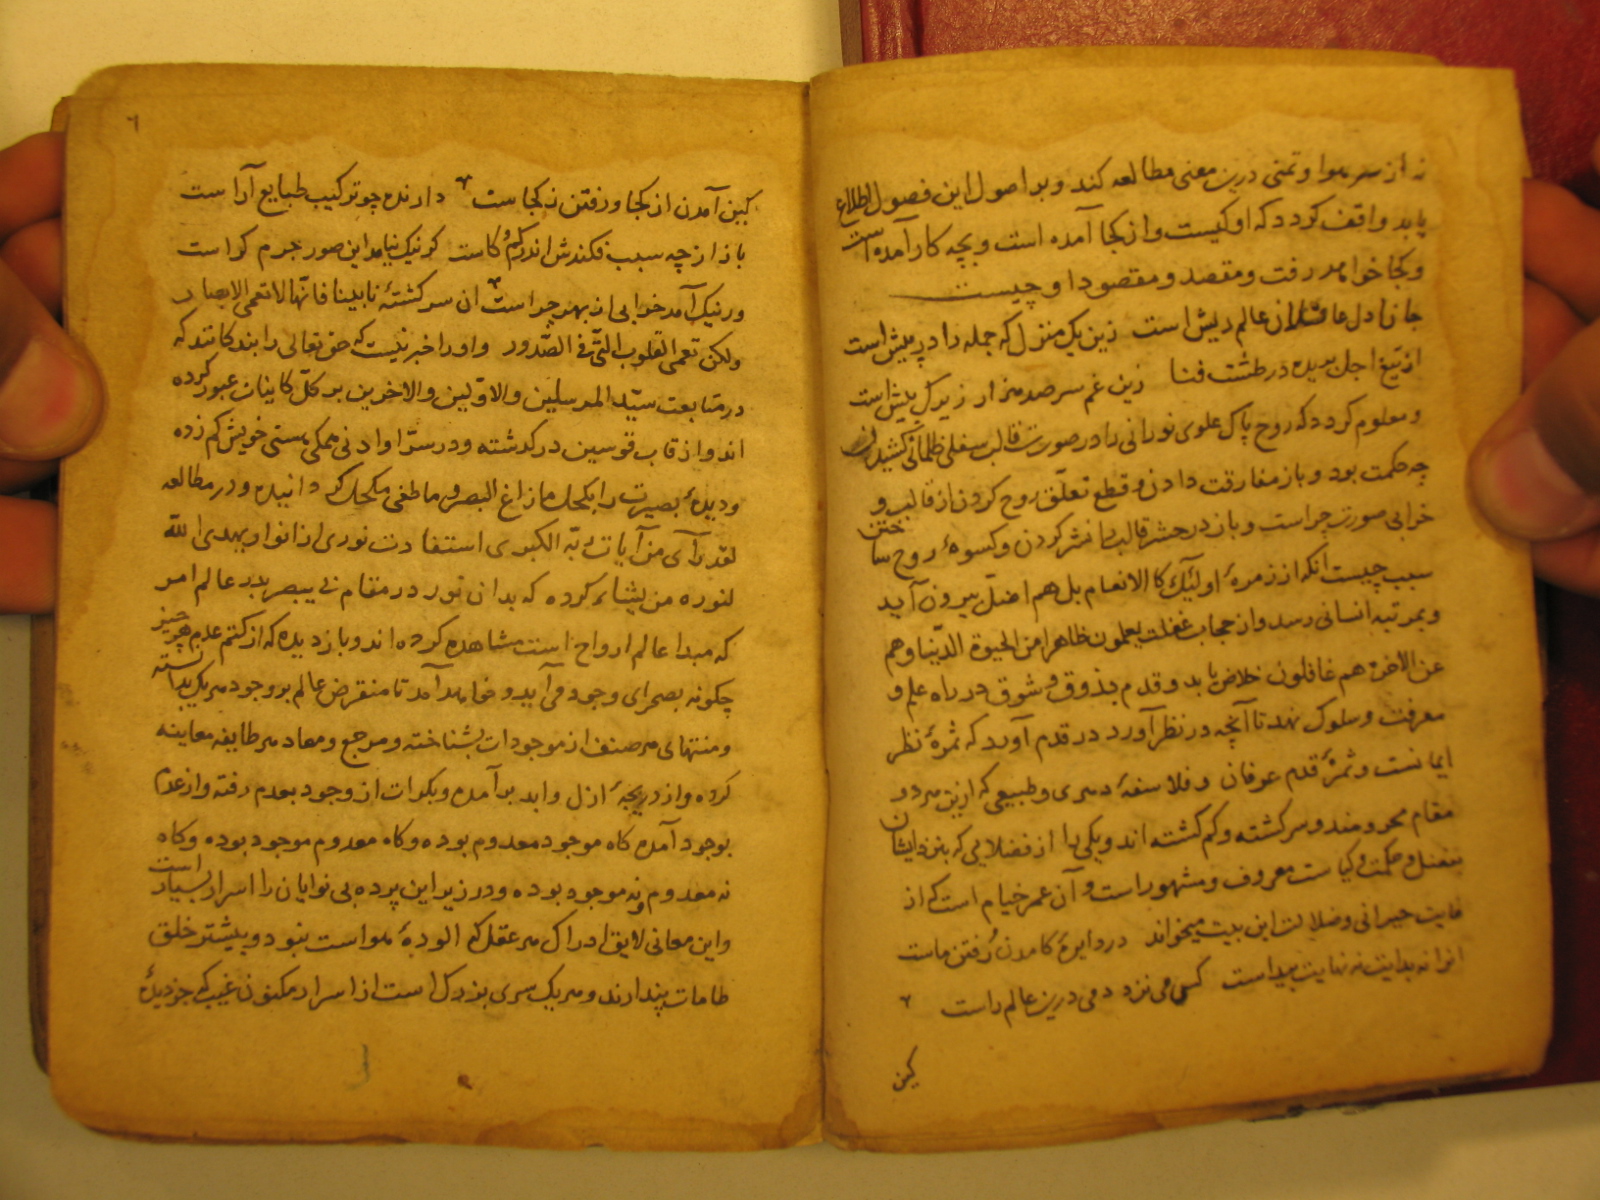 نه از سر هوا و تمنی درین معنی مطالعه کند و بر اصول این فصول اطلاع
یابد واقف کردد که او کیست و از کجا آمده است و بچه کار آمده است
و کجا خواهد رفت و مقصد و مقصود او چیست
جانا دل عاقلان عالم ریش است زین یک منزل که جمله را در پیش است
از تیغ اجل بریده در طشت فنا زین غم سر صد هزار زیرک بیش است
و معلوم کردد که روح پاک علوی نورانی را در صورت قالب سفلی ظلمانی کشیدن
چه حکمت بود و باز مفارقت دادن و قطع تعلّق روح کردن از قالب و
خرابی صورت چراست و باز در حشر قالب را نشر کردن و کسوهٔ روح ساختن
سبب چیست آنکه از زمرهٔ اولئک کالانعام بل هم اضل بیرون آید
و بمرتبه انسانی رسد و از حجاب غفلت یعلمون ظاهرا من الحیوة الدّنیا وهم
عن الاخرة هم غافلون خلاص یابد و قدم بذوق و شوق در راه علم و
معرفت و سلوک نهد تا آنچه در نظر آورد در قدم آورد که ثمرهٔ نظر
ایمانست و ثمرهٔ قدم عرفان و فلاسفهٔ دهری و طبیعی که ازین هر دو
مقام محرومند و سرکشته و کم کشته اند و یکی را از فضلایی که بنزد ایشان
بفضل و حکمت و کیاست معروف و مشهور است و آن عمر خیام است که از
غایت حیرانی و ضلالت این بیت میخواند در دایرهٔ کامدن و رفتن ماست
انرا نه بدایت نه نهایت پیداست کس می نزد دمی درین عالم راست
کین
٦
کین آمدن از کجا و رفتن ز کجاست دارنده چو ترکیب طبایع آراست
باز از چه سبب فکندش اندر کم و کاست کر نیک نیامد این صور جرم کراست
ور نیک آمد خرابی از بهر چراست ان سرکشتهٔ نابینا فانّها لاتعمی الابصار
ولکن تعمی القلوب الّتی فی الصّدور و او را خبر نیست که حق تعالی را بندکانند که
در متابعت سیّد المرسلین والاوّلین والاخرین بر کلّ کاینات عبور کرده
اند و از قاب قوسین درکذشته و در سرّ او ادنی همکی هستی خویش کم زده
و دیدهٔ بصیرت را بکحل ما زاغ البصر و ماطغی مکحل کردانیده و در مطالعه
لقد رآی من آیات ربّه الکبری استفادت نوری از انوار یهدی الله
لنوره من یشاء کرده که بدان نور در مقام بی یبصر بدر عالم امر
که مبدا عالم ارواح است مشاهده کرده اند و باز دیده که از کتم عدم هر چیز
چکونه بصحرای وجود می آید و خواهد آمد تا منقرض عالم بر وجود هریک بدانسته
و منتهای هر صنف از موجودات بشناخته و مرجع و معاد هر طایفه معاینه
کرده و از دریچهٔ ازل و ابد بدآمده و بکرات از وجود بعدم رفته و از عدم
بوجود آمده کاه موجود معدوم بوده و کاه معدوم موجود بوده و کاه
نه معدوم و نه موجود بوده و در زیر این پرده بی نوایان را اسرار بسیار است
و این معانی لایق ادراک هر عقل که الودهٔ هواست بنود و بیشتر خلق
طامات پندارند و هریک سری بزرک است از اسرار مکنون غیب که جز دیدهٔ